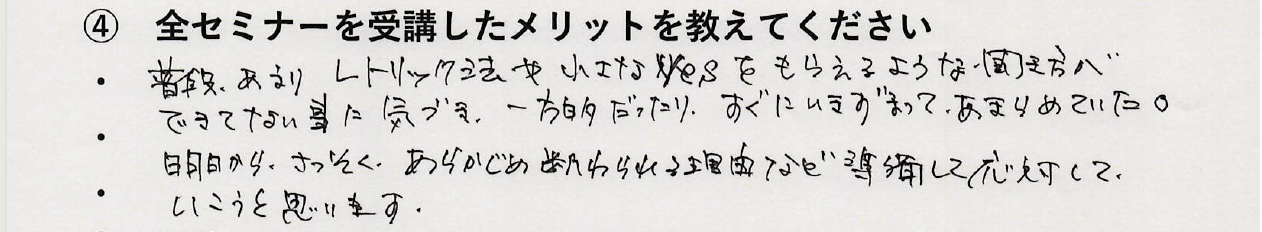 ④ 全セミナーを受講したメリットを教えてください
・ 普段、あまり レトリック法や小さなYesをもらえるような、聞き方が
できてない事に気づき、一方的だったり、すぐにいきづまって、あきらめていた。
・
明日から、さっそく、あらかじめ断わられる理由など準備して応対して、
・ いこうと思います。